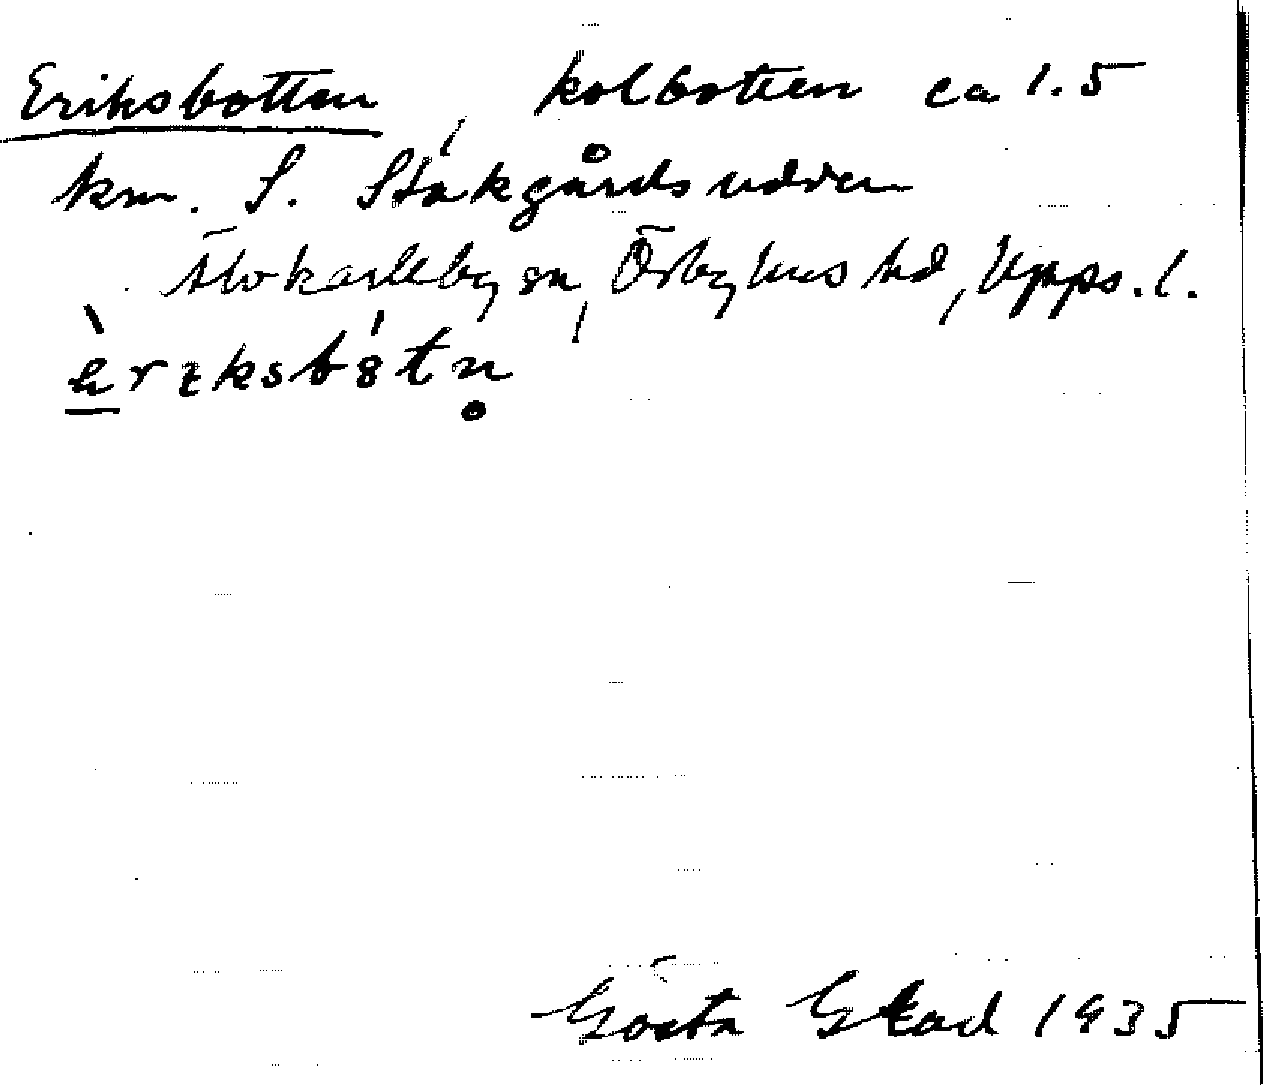 Eriksbotten, kolbotten ca 1.5
km. S. Stakgårdsudden
Älvkarleby sn, Örbyhus hd, Upps. l.
Gösta Ekad 1935